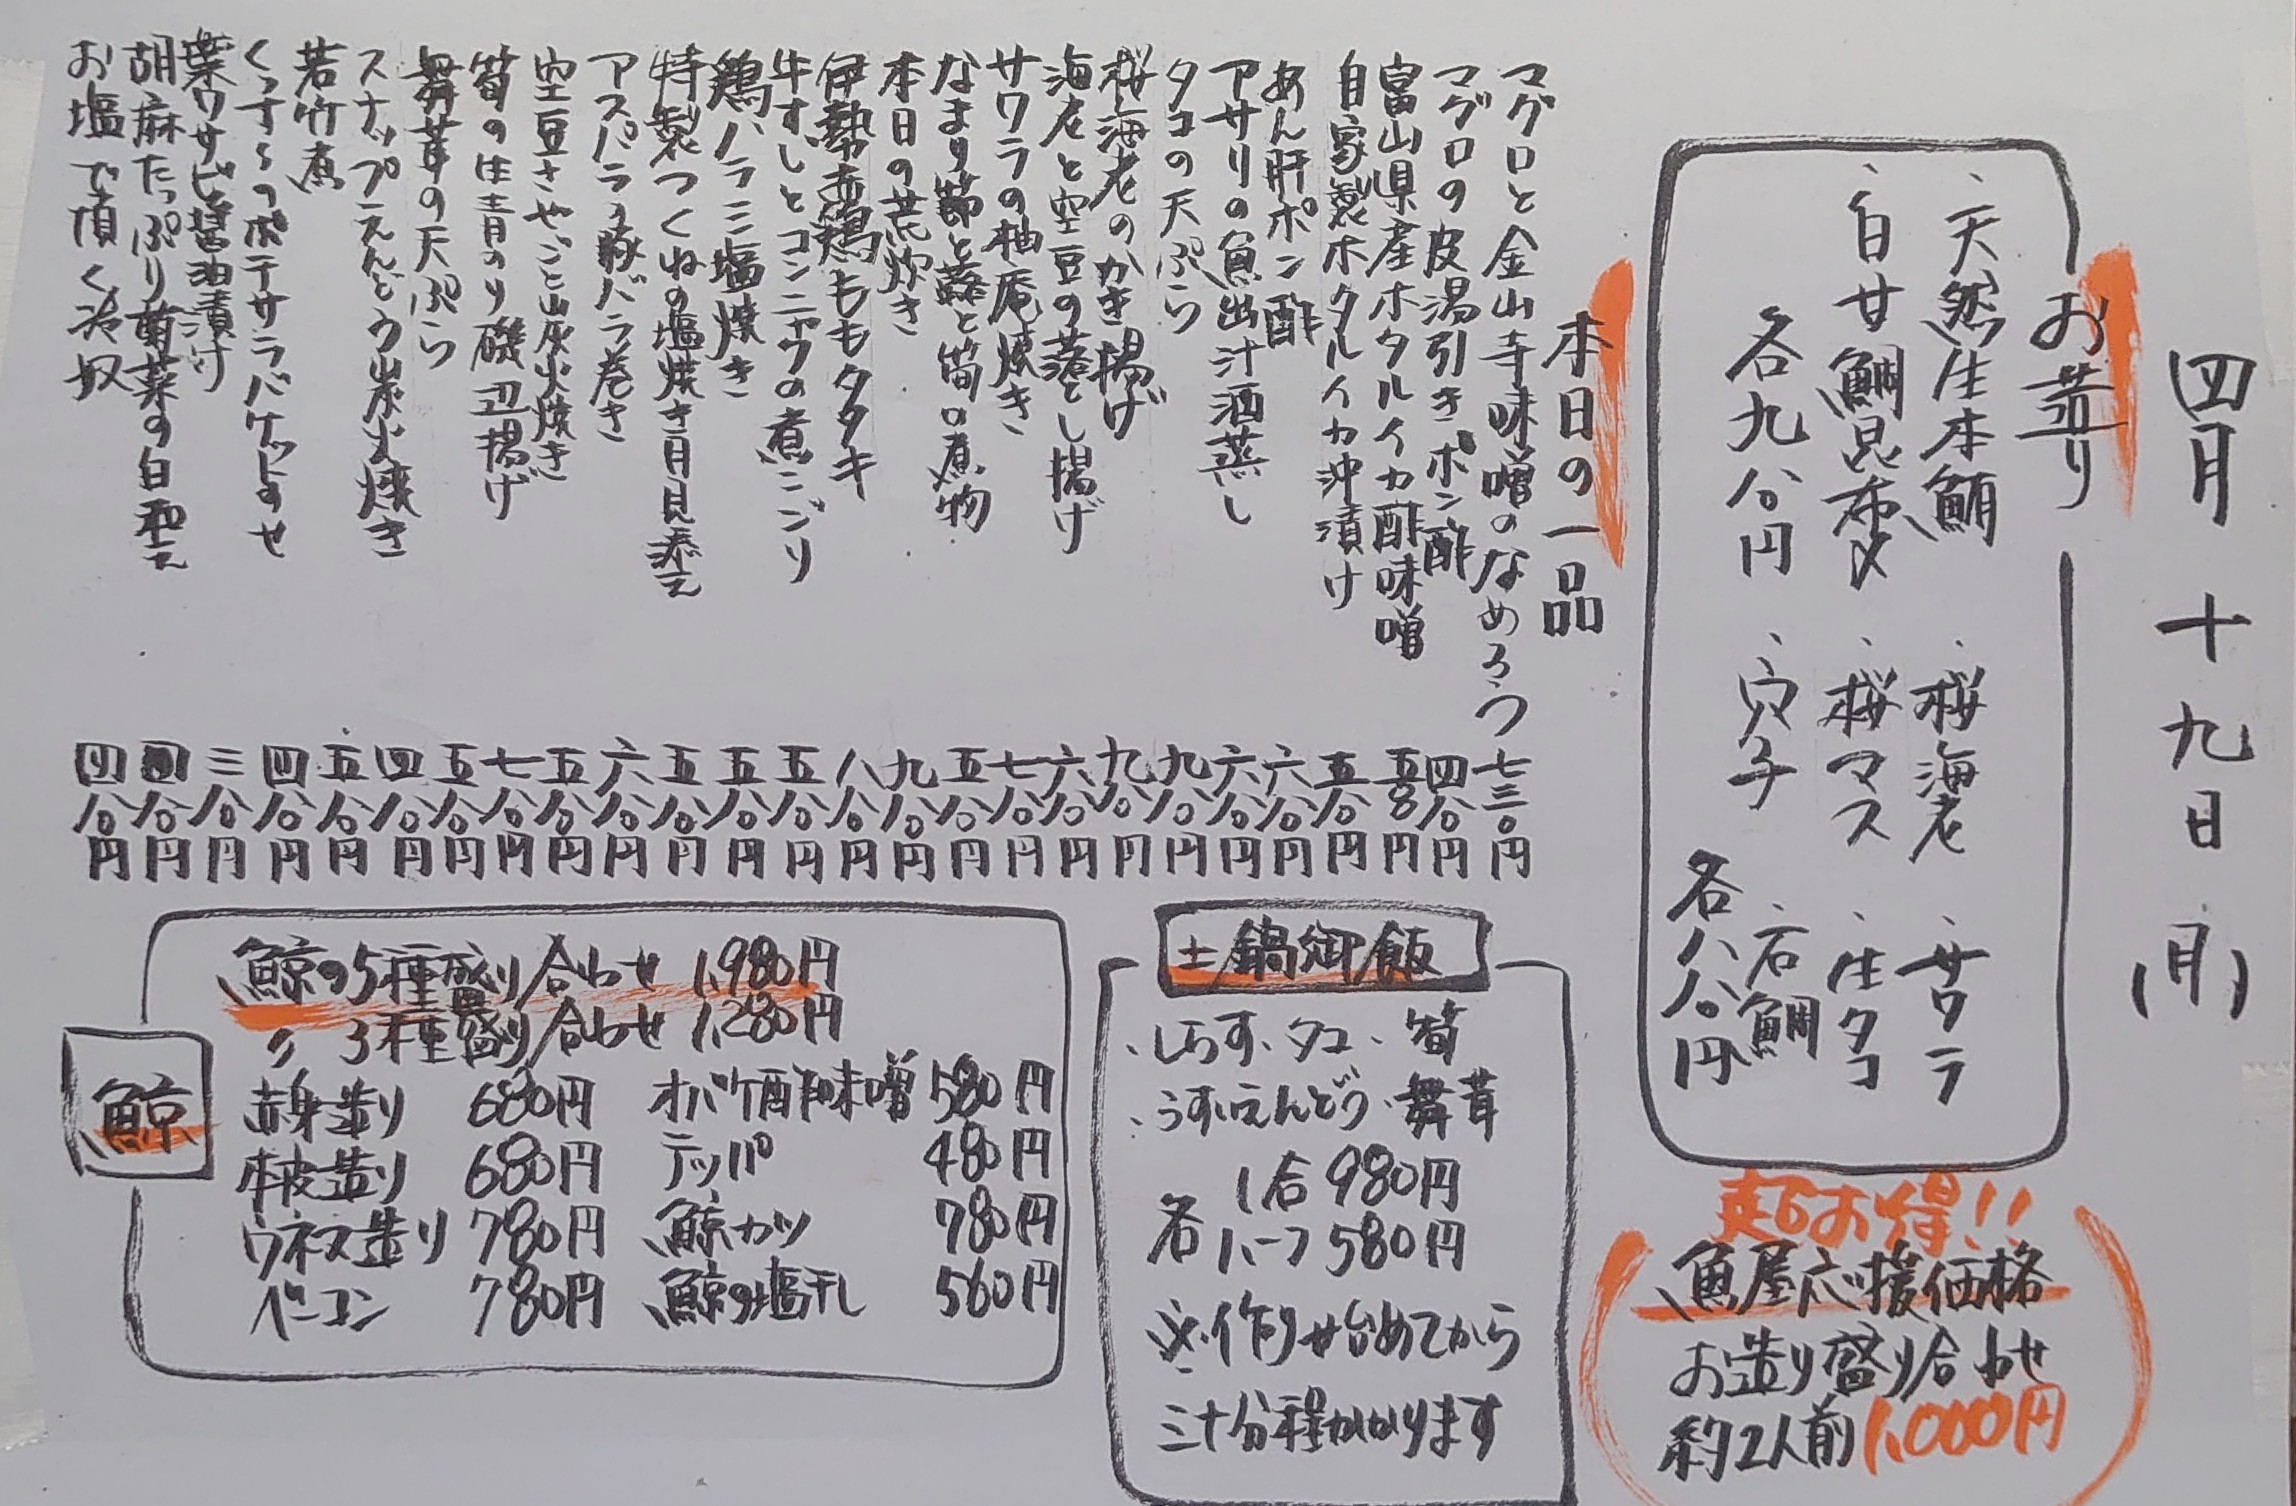 四月十九日(月)
お造り
・天然生本鮪
・白甘鯛昆布〆
各九八〇円
・桜海老
・サワラ
・桜マス
・生タコ
・穴子
・石鯛
各八八〇円
超お得!!
魚屋応援価格
お造り盛り合わせ
約2人前1,000円
本日の一品
マグロと金山寺味噌のなめろう 七三〇円
マグロの皮湯引きポン酢 四八〇円
富山県産ホタルイカ酢味噌 五八〇円
自家製ホタルイカ沖漬け 五八〇円
あん肝ポン酢 六八〇円
アサリの魚出汁酒蒸し 六八〇円
タコの天ぷら 九八〇円
桜海老のかき揚げ 九八〇円
海老と空豆の落とし揚げ 六八〇円
サワラの柚庵焼き 七八〇円
なまり節と蕗と筍の煮物 五八〇円
本日の荒炊き 九八〇円
伊勢赤鶏ももタタキ 八八〇円
牛すじとコンニャクの煮こごり 五八〇円
鶏ハラミ塩焼き 五八〇円
特製つくねの塩焼き月見添え 五八〇円
アスパラの豚バラ巻き 六八〇円
空豆さやごと炭火焼き 五八〇円
筍の生青のり磯辺揚げ 七八〇円
舞茸の天ぷら 五八〇円
スナップえんどう炭火焼き 四八〇円
若竹煮 五八〇円
ポテサラバケットのせ 四八〇円
葉ワサビ醤油漬け 三八〇円
胡麻たっぷり菊菜の白和え 四八〇円
お塩で頂く冷奴 四八〇円
土鍋御飯
・しらす・タコ・筍
・うすいえんどう・舞茸
各 1合980円
ハーフ580円
※作り始めてから
三十分程かかります
鯨
鯨の5種盛り合わせ 1,980円
〃 3種盛り合わせ 1,280円
赤身造り 680円 オバケ酢味噌 580円
本皮造り 680円 テッパ 480円
ウネス造り 780円 鯨カツ 780円
ベーコン 780円 鯨の塩干し 560円